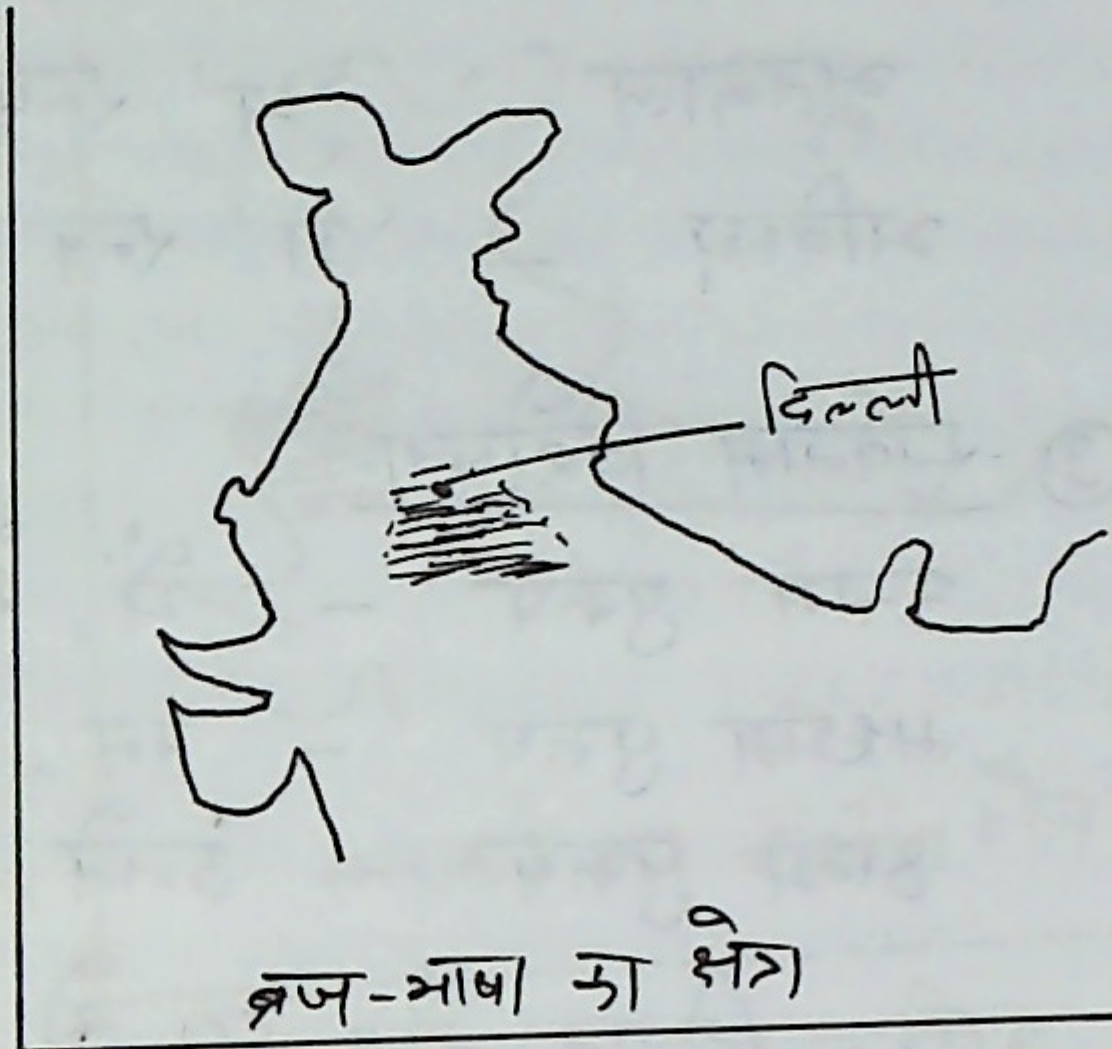 दिल्ली
ब्रज-भाषा का क्षेत्र